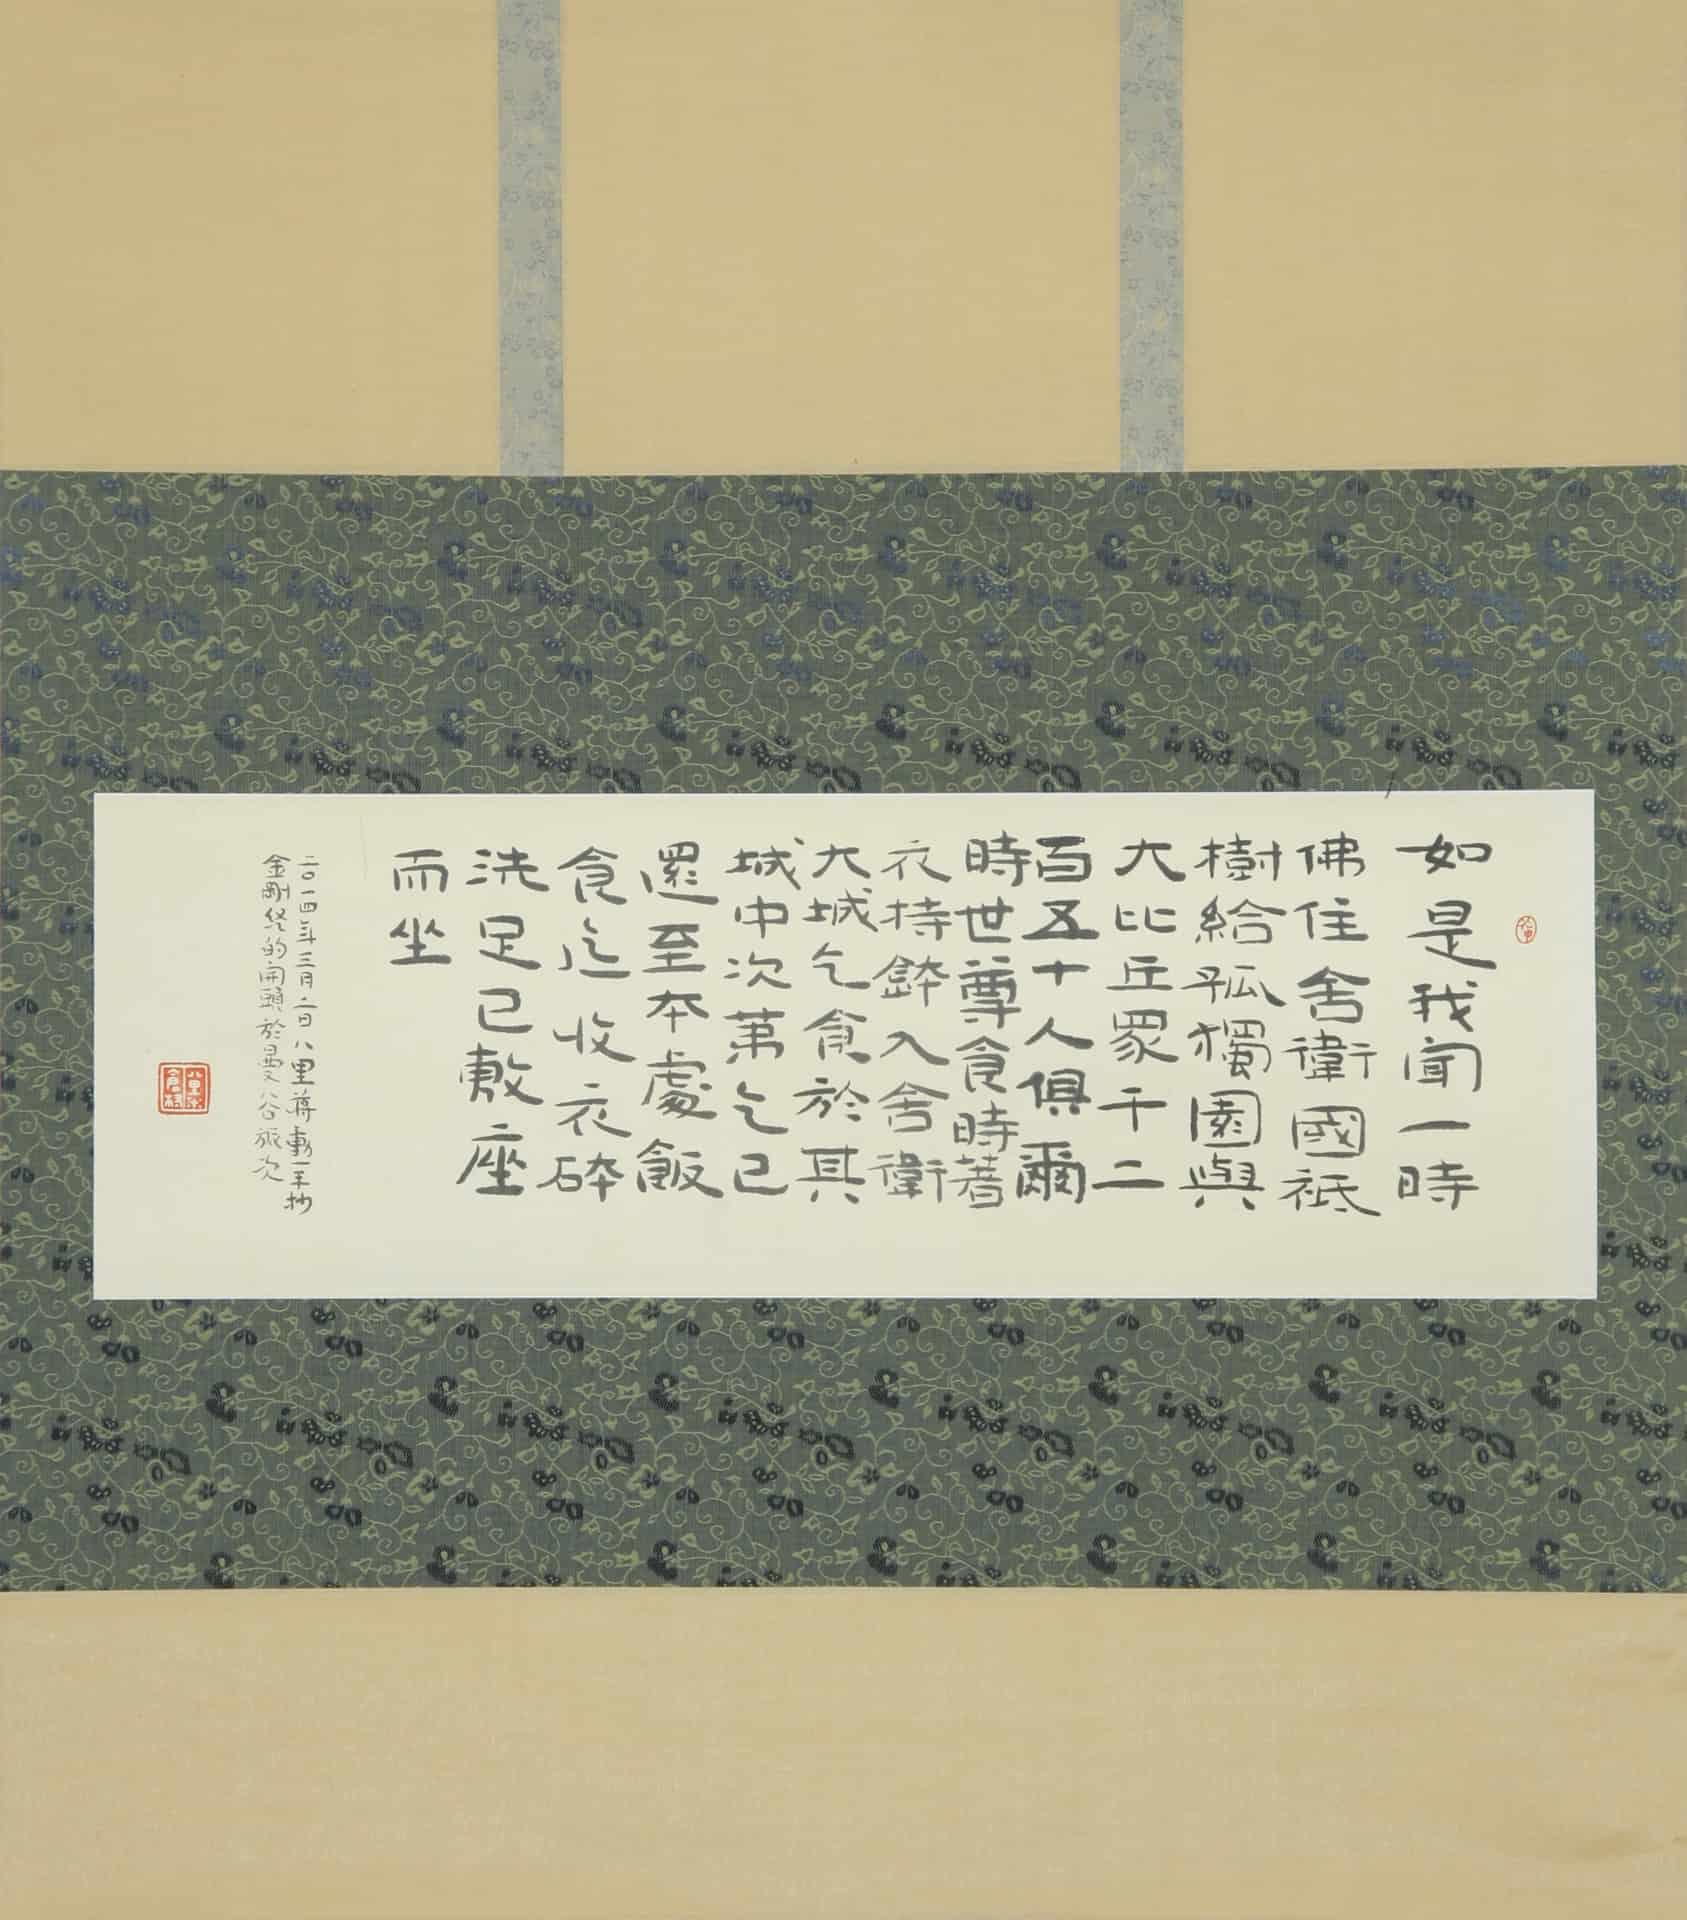 如是我聞一時
佛住舍衛國祇
樹給孤獨園與
大比丘眾千二
百五十人俱爾
時世尊食時著
衣持鉢入舍衛
大城乞食於其
城中次第乞已
還至本處飯
食訖收衣鉢
洗足已敷座
而坐
二〇一四年三月二日八里蔣勳手抄
金剛經的開頭於曼谷旅次